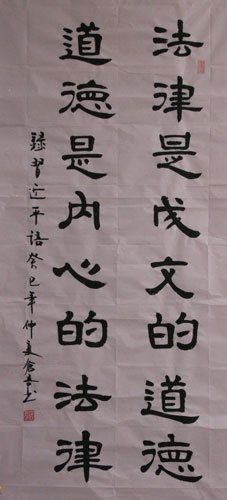 法律是成文的道德
道德是内心的法律
録習近平語癸巳年仲夏